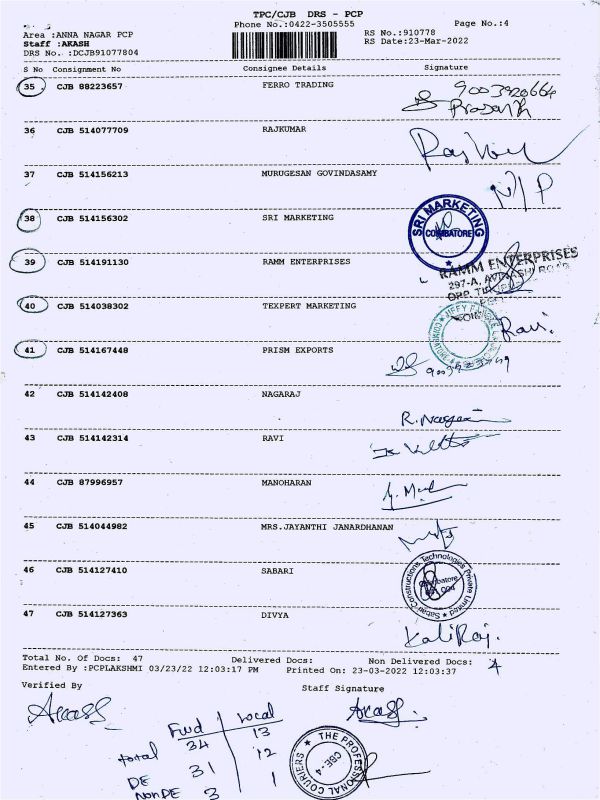 TPC/CJB DRS - PCP
Phone No.:0422-3505555
Page No.:4
Area :ANNA NAGAR PCP
RS No.:910778
Staff :AKASH
RS Date:23-Mar-2022
DRS No. :DCJB91077804
S No Consignment No Consignee Details Signature
35 CJB 88223657 FERRO TRADING 9003920664
Prasanth
36 CJB 514077709 RAJKUMAR
37 CJB 514156213 MURUGESAN GOVINDASAMY
38 CJB 514156302 SRI MARKETING
SRI MARKETING
COIMBATORE
39 CJB 514191130 RAMM ENTERPRISES
RAMM ENTERPRISES
297-A, AVINASHI ROAD
40 CJB 514038302 TEXPERT MARKETING
Ravi
41 CJB 514167448 PRISM EXPORTS
42 CJB 514142408 NAGARAJ
43 CJB 514142314 RAVI
44 CJB 87996957 MANOHARAN
45 CJB 514044982 MRS.JAYANTHI JANARDHANAN
46 CJB 514127410 SABARI
Sabari Constructions Technologies Private Limited
47 CJB 514127363 DIVYA
KaliRaj.
Total No. Of Docs: 47 Delivered Docs: Non Delivered Docs: 4
Entered By :PCPLAKSHMI 03/23/22 12:03:17 PM Printed On: 23-03-2022 12:03:37
Verified By Staff Signature
Akash Akash
Fwd Local
total 34 13
DE 31 12
NONDE 3 1
THE PROFESSIONAL COURIERS
CBE-4